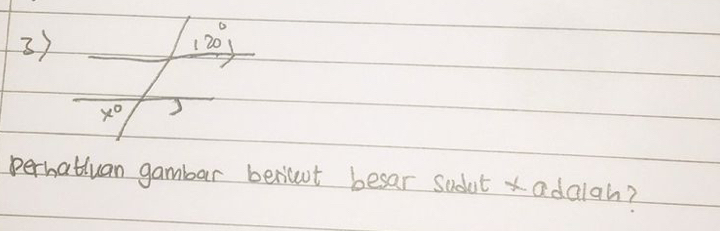 3)
120°
x°
perhatikan gambar berikut besar sudut x adalah?